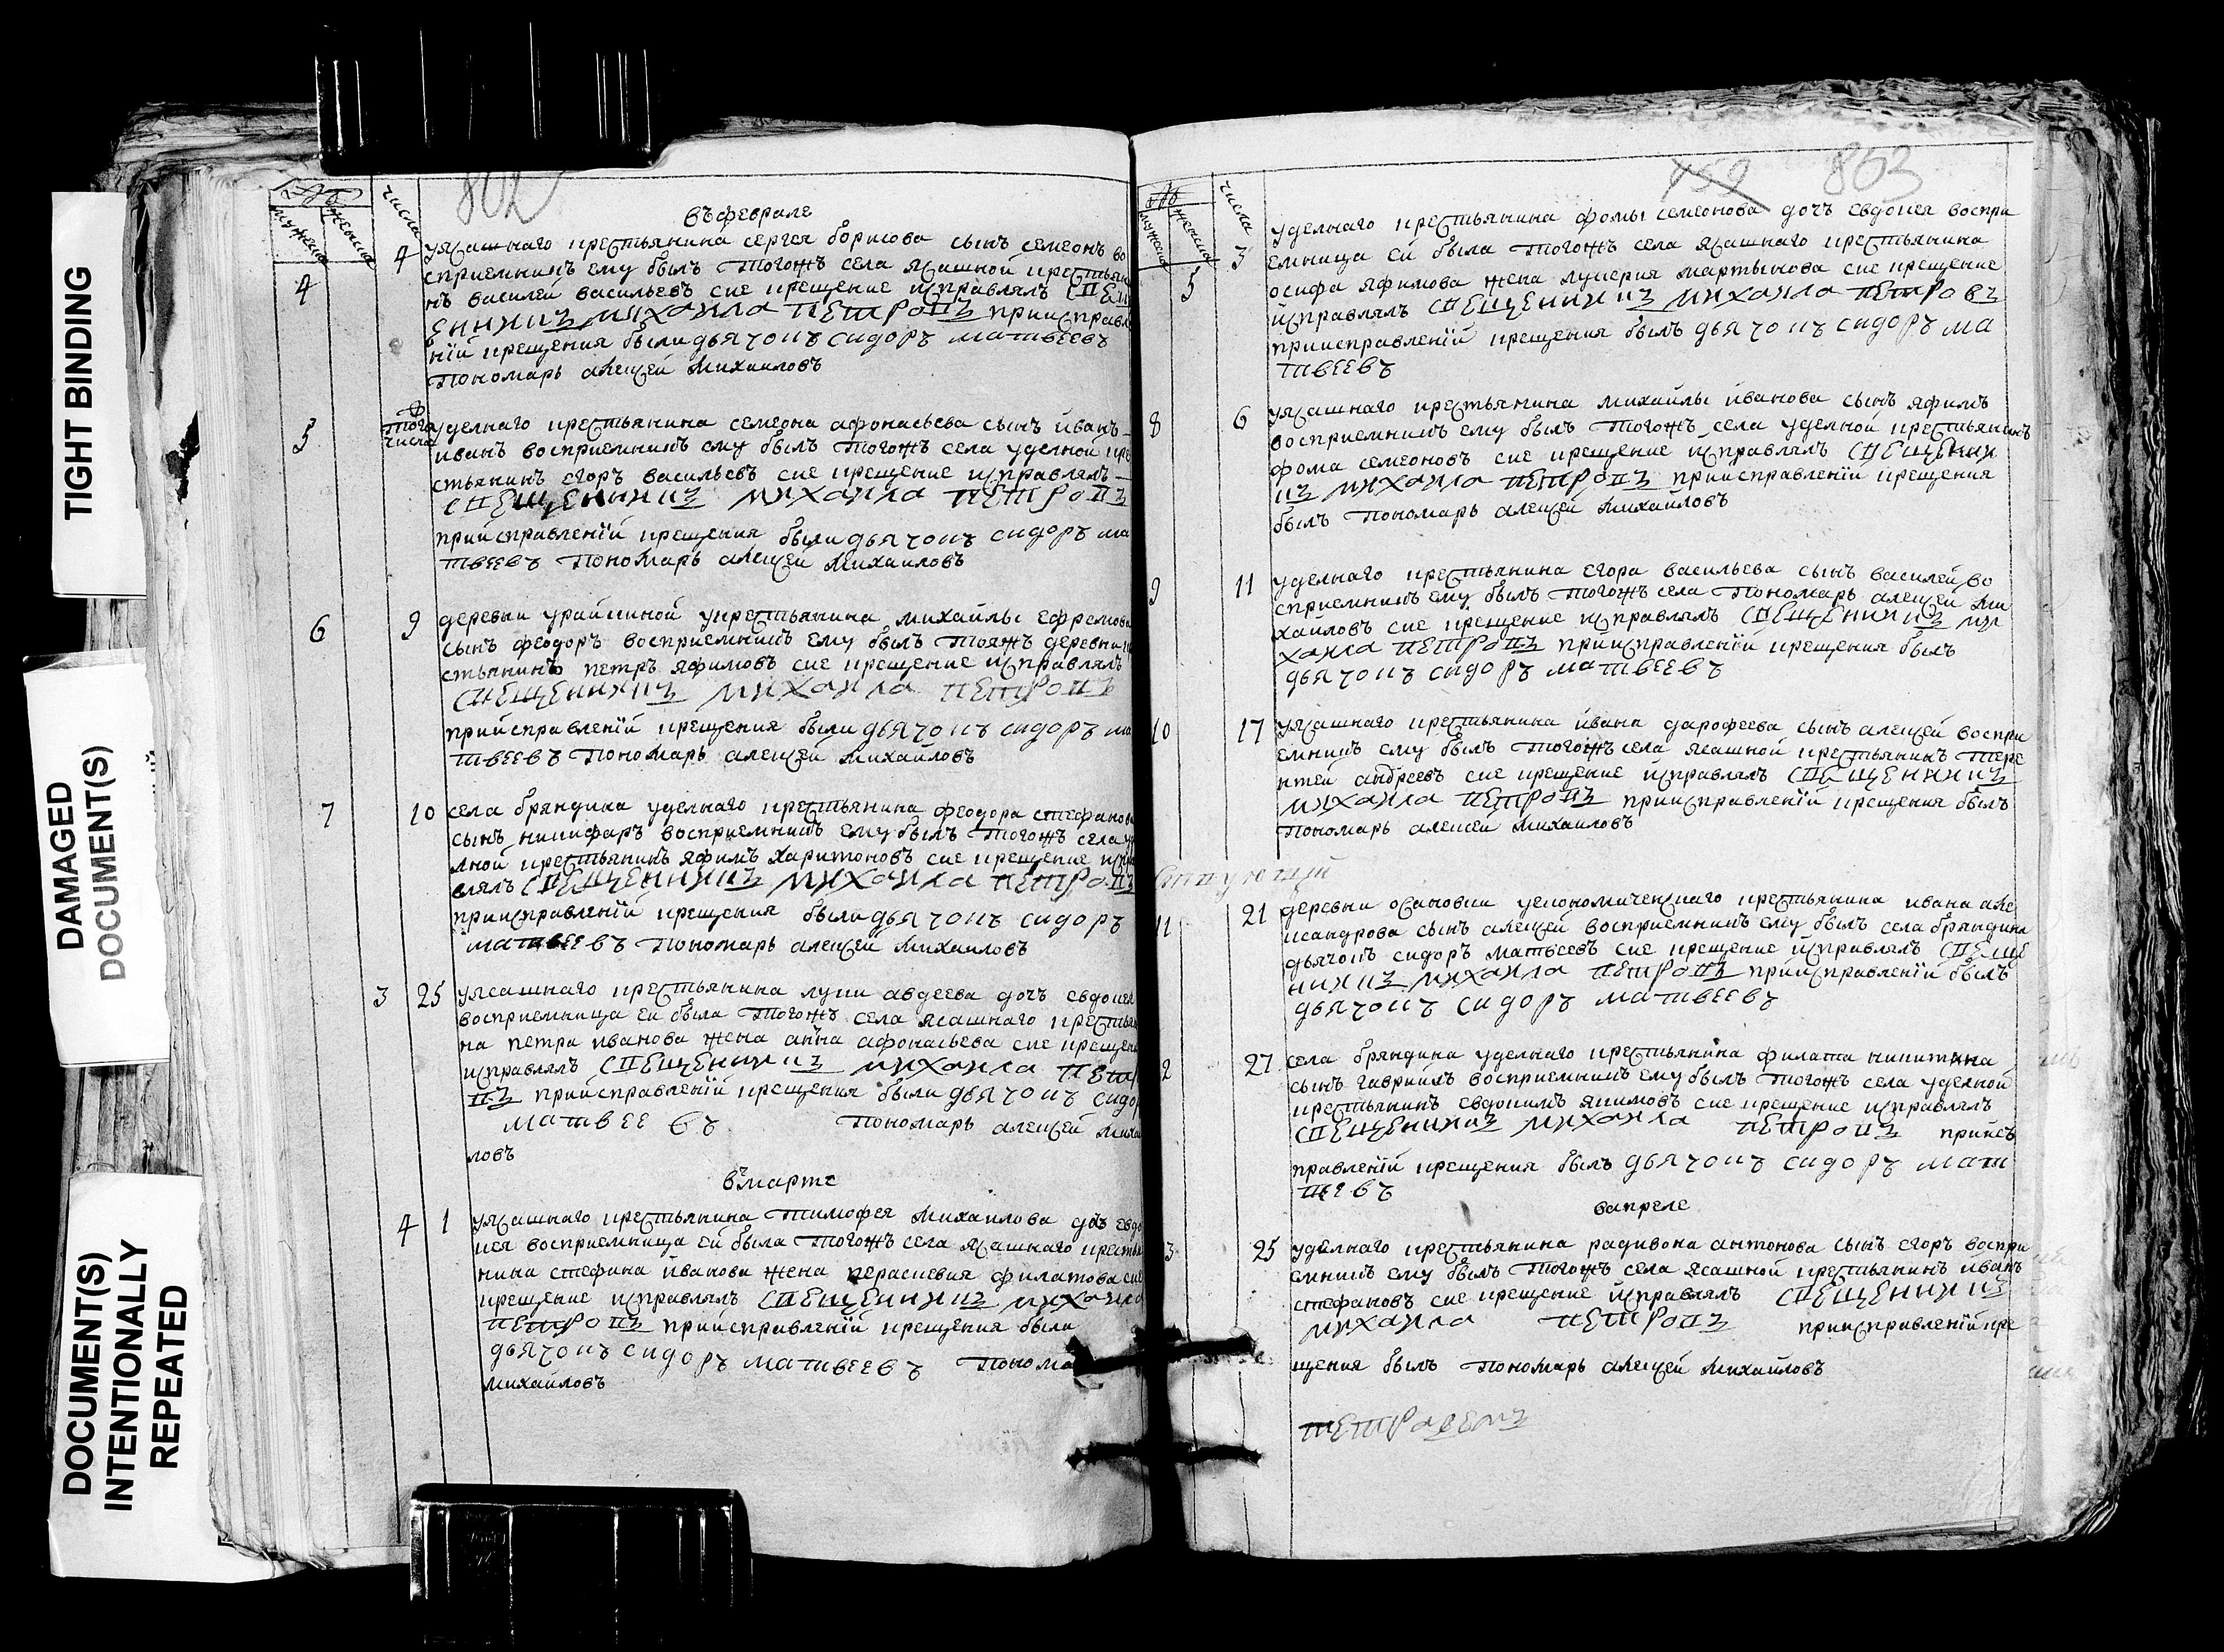 TIGHT BINDING
DAMAGED
DOCUMENT(S)
DOCUMENT(S)
INTENTIONALLY
REPEATED
802
числа
мужеска
женска
въ феврале
4
4
уясашнаго крестьянина сергея борисова сынъ семеонъ во
сприемникъ ему былъ тогожъ села ясашной крестьяни
нъ василей васильевъ сие крещение исправлялъ свещ
енникъ михаила петровъ приисправле
нїй крещения были дьячокъ сидоръ матвеевъ
пономарь алексей михаиловъ
5
того
числа
уделнаго крестьянина семеона афонасьева сынъ иванъ
иванъ восприемникъ ему былъ тогожъ села уделной кре
стьянинъ егоръ васильевъ сие крещение исправлялъ
свещенникъ михаила петровъ
приисправленїй крещения были дьячокъ сидоръ ма
твеевъ пономарь алексей михаиловъ
6
9
деревни урайкиной укрестьянина михайлы ефремова
сынъ феодоръ восприемникъ ему былъ тояжъ деревни кре
стьянинъ петръ яфимовъ сие крещение исправлялъ
свещенникъ михаила петровъ
приисправленїй крещения были дьячокъ сидоръ ма
твеевъ пономарь алексей михайловъ
7
10
села бряндина уделнаго крестьянина феодора стефанова
сынъ никифаръ восприемникъ ему былъ тогожъ села уде
лной крестьянинъ яфимъ харитоновъ сие крещение испра
влялъ свещенникъ михаила петровъ
приисправленїй крещения были дьячокъ сидоръ
матвеевъ пономарь алексей михаиловъ
3
25
уясашнаго крестьянина луки авдеева дочъ евдокея
восприемница ей была тогожъ села ясашнаго крестьяни
на петра иванова жена анна афонасьева сие крещение
исправлялъ свещенникъ михаила петро
въ приисправленїй крещения были дьячокъ сидор
матвеевъ пономарь алексей михаи
ловъ
въ марте
4
1
уясашнаго крестьянина тимофея михаилова дочъ евдо
кея восприемница ей была тогожъ села ясашнаго крестья
нина стефана иванова жена перасковия филатова сие
крещение исправлялъ свещенникъ михаила
петровъ приисправленїй крещения были
дьячокъ сидоръ матвеевъ понома
михаиловъ
759
803
числа
мужеска
женска
5
3
уделнаго крестьянина фомы семеонова дочъ евдокея воспри
емница ей была тогожъ села ясашнаго крестьянина
осифа яфимова жена лукерия мартынова сие крещение
исправлялъ свещенникъ михаила петровъ
приисправленїй крещения былъ дьячокъ сидоръ ма
твеевъ
8
6
уясашнаго крестьянина михайлы иванова сынъ яфимъ
восприемникъ ему былъ тогожъ села уделной крестьянинъ
фома семеоновъ сие крещение исправлялъ свещенни
къ михаила петровъ приисправленїй крещения
былъ пономарь алексей михаиловъ
9
11
уделнаго крестьянина егора васильева сынъ василей во
сприемникъ ему былъ тогожъ села пономарь алексей ми
хайловъ сие крещение исправлялъ свещенникъ ми
хаила петровъ приисправленїй крещения былъ
дьячокъ сидоръ матвеевъ
10
17
уясашнаго крестьянина ивана дарофеева сынъ алексей воспри
емникъ ему былъ тогожъ села ясашной крестьянинъ тере
нтей андреевъ сие крещение исправлялъ свещенникъ
михаила петровъ приисправленїй крещения былъ
пономарь алексей михаиловъ
11
21
деревни осановки уекономическаго крестьянина ивана але
ксандрова сынъ алексей восприемникъ ему былъ села бряндина
дьячокъ сидоръ матвеевъ сие крещение исправлялъ свеще
нникъ михаила петровъ приисправленїй былъ
дьячокъ сидоръ матвеевъ
2
27
села бряндина уделнаго крестьянина филата никитина
сынъ гаврийлъ восприемникъ ему былъ тогожъ села уделной
крестьянинъ евдокимъ якимовъ сие крещение исправлялъ
свещенникъ михаила петровъ приисъ
правленїй крещения былъ дьячокъ сидоръ мат
веевъ
вапреле
3
25
уделнаго крестьянина радивона антонова сынъ егоръ воспри
емникъ ему былъ тогожъ села ясашной крестьянинъ иванъ
стефановъ сие крещение исправлялъ свещенникъ
михаила петровъ приисправленїй кре
щения былъ пономарь алексей михайловъ